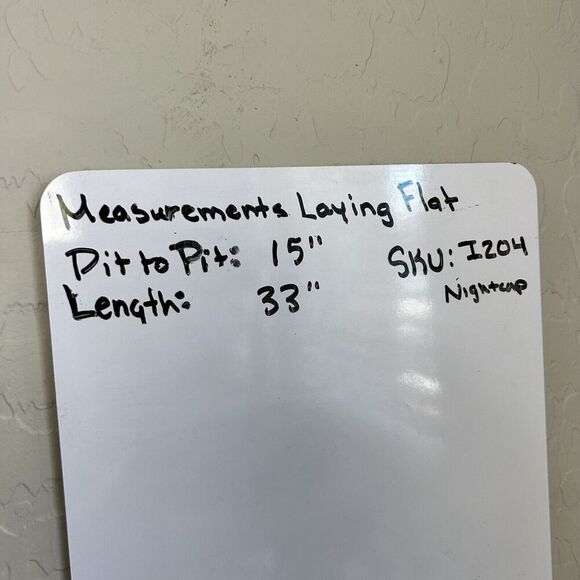 Measurements Laying Flat
Pit to Pit: 15" SKU: I204
Length: 33" Nightcap